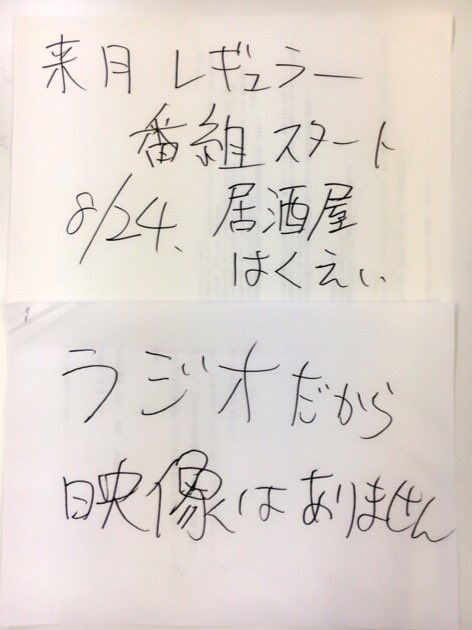 来月レギュラー
番組スタート
8/24、居酒屋
はくえい
ラジオだから
映像はありません